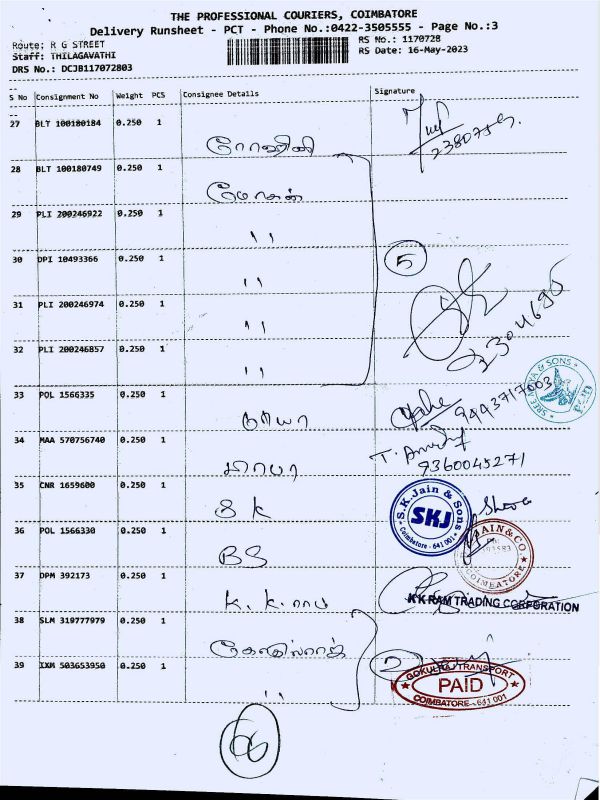 THE PROFESSIONAL COURIERS, COIMBATORE
Delivery Runsheet - PCT - Phone No.:0422-3505555 - Page No.:3
Route: R G STREET
RS No.: 1170728
Staff: THILAGAVATHI
RS Date: 16-May-2023
DRS No.: DCJB117072803
S No Consignment No Weight PCS Consignee Details Signature
27 BLT 100180184 0.250 1
28 BLT 100180749 0.250 1 மோகன்
29 PLI 200246922 0.250 1 ''
30 DPI 10493366 0.250 1 '' 5
31 PLI 200246974 0.250 1 ''
32 PLI 200246857 0.250 1 ''
33 POL 1566335 0.250 1 9493717003
SREE & SONS
34 MAA 570756740 0.250 1 9360045271
35 CNR 1659600 0.250 1 S K
S.K.Jain & Sons
SKJ
Coimbatore - 641 001
36 POL 1566330 0.250 1 BS
JAIN & CO.
COIMBATORE
37 DPM 392173 0.250 1 K.K.ராம்
K K RAM TRADING CORPORATION
38 SLM 319777979 0.250 1
39 IXM 503653950 0.250 1 '' 2
GOKULRAJ TRANSPORT
PAID
COIMBATORE - 641 001
66